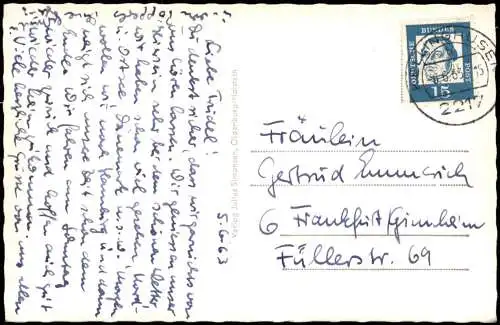 5.6.63
Liebe Trudel!
Du denkst sicher, dass wir garnichts von
uns hören lassen. Wir geniessen unser
bei dem schönen Wetter
wir haben schon viel gesehen Nord-
u. Ostsee, Dänemark u.s.w. Morgen
wollen wir nach Hamburg und dann
neigt sich unsere Zeit schon dem
Ende. Wir fahren am Samstag
wieder zurück und hoffen auch gut
wieder heim zu kommen.
Viele herzliche Grüße von uns allen
Verlag Julius Simonsen, Oldenburg/Holstein
DEUTSCHE
BUNDES
POST
15
2217
Fräulein
Gertrud Emmerich
6 Frankfurt/Ginnheim
Füllerstr. 69